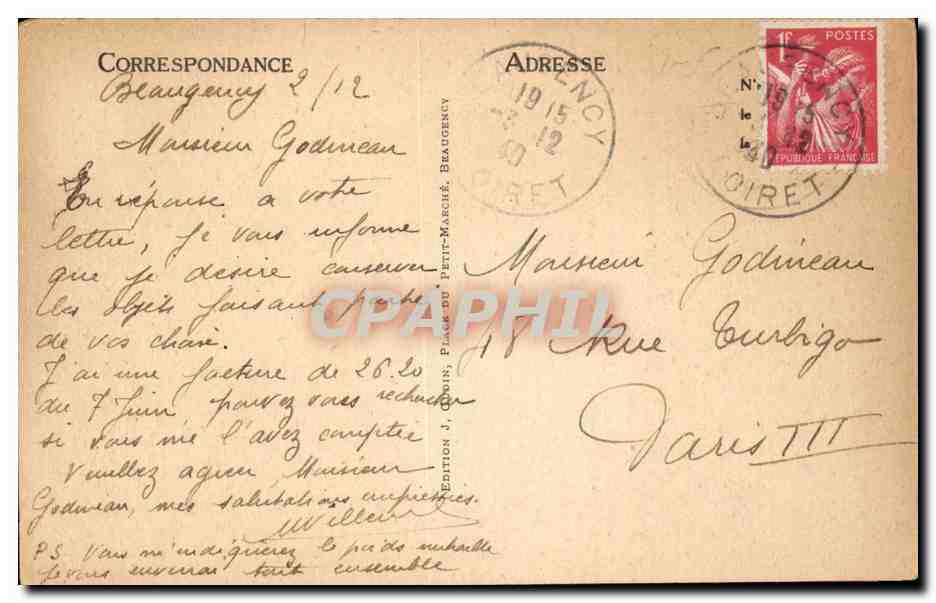 CORRESPONDANCE
Beaugency 2/12
Monsieur Godineau
En réponse a votre
lettre, je vous informe
que je désire conserver
les objets faisant partie
de vos choix.
J'ai une facture de 26.20
du 7 Juin pouvez vous rechercher
si vous me l'avez comptée
Veuillez agréer, Monsieur
Godineau, mes salutations empressées.
PS Vous m'indiquerez le poids
je vous enverrai tout ensemble
EDITION J, GODIN, PLACE DU PETIT-MARCHÉ, BEAUGENCY
ADRESSE
BEAUGENCY
19 15
-3 12
40
LOIRET
N°
le
la
1F POSTES
REPUBLIQUE FRANÇAISE
BEAUGENCY
19 15
12
40
LOIRET
Monsieur Godineau
48 Rue Turbigo
Paris III
CPAPHIL